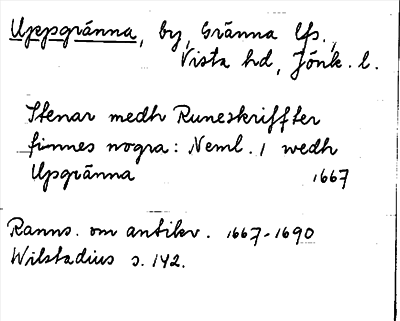 Uppgränna, by, Gränna lfs.,
Vista hd, Jönk. l.
Stenar medh Runeskriffter
finnes nogra: Neml. 1 wedh
Upgränna 1667
Ranns. om antikv. 1667-1690
Wilstadius s. 142.